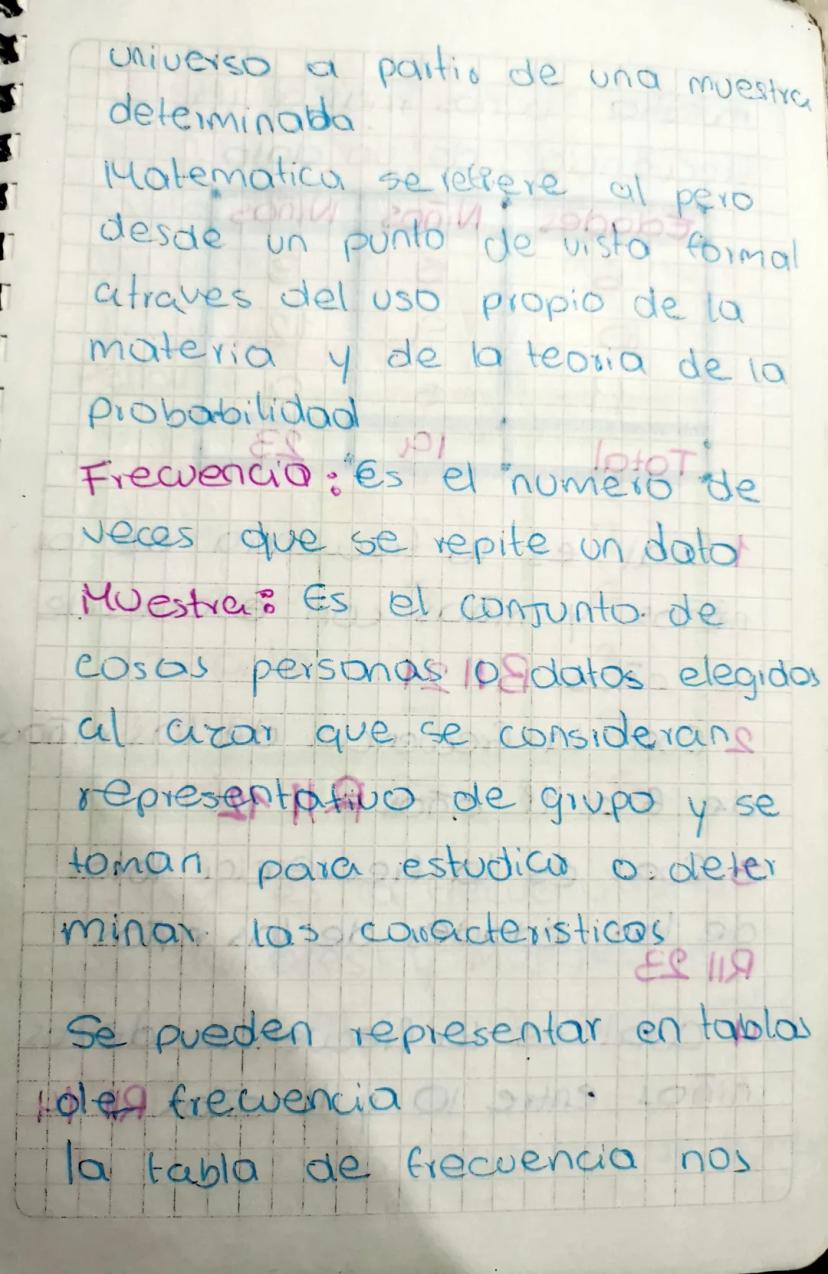 universo a partir de una muestra
determinada
Matematica se refiere al pero
desde un punto de vista formal
atraves del uso propio de la
materia y de la teoria de la
probabilidad
Frecuencia: Es el numero de
veces que se repite un dato
Muestra: Es el conjunto de
cosas personas o datos elegidos
al azar que se consideran
representativo de grupo y se
toman para estudiar o deter
minar las caracteristicas
Se pueden representar en tablas
de frecuencia
la tabla de frecuencia nos